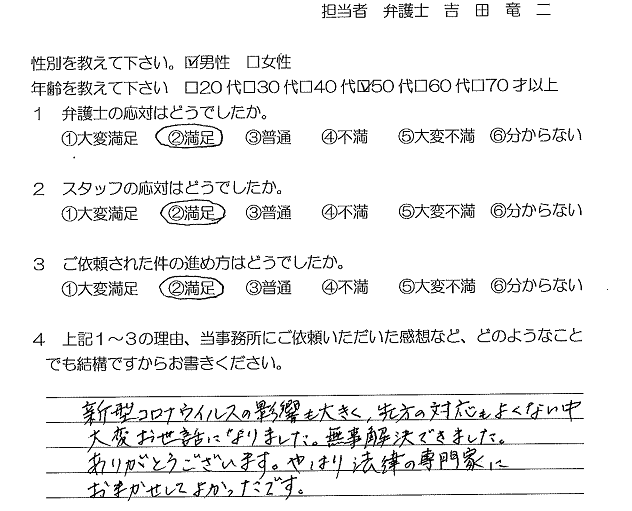 担当者 弁護士 吉田竜二
性別を教えて下さい。☑男性 □女性
年齢を教えて下さい □20代□30代□40代☑50代□60代□70才以上
1 弁護士の応対はどうでしたか。
①大変満足 ②満足 ③普通 ④不満 ⑤大変不満 ⑥分からない
2 スタッフの応対はどうでしたか。
①大変満足 ②満足 ③普通 ④不満 ⑤大変不満 ⑥分からない
3 ご依頼された件の進め方はどうでしたか。
①大変満足 ②満足 ③普通 ④不満 ⑤大変不満 ⑥分からない
4 上記1～3の理由、当事務所にご依頼いただいた感想など、どのようなこと
でも結構ですからお書きください。
新型コロナウイルスの影響も大きく、先方の対応もよくない中
大変お世話になりました。無事解決できました。
ありがとうございます。やはり法律の専門家に
おまかせしてよかったです。